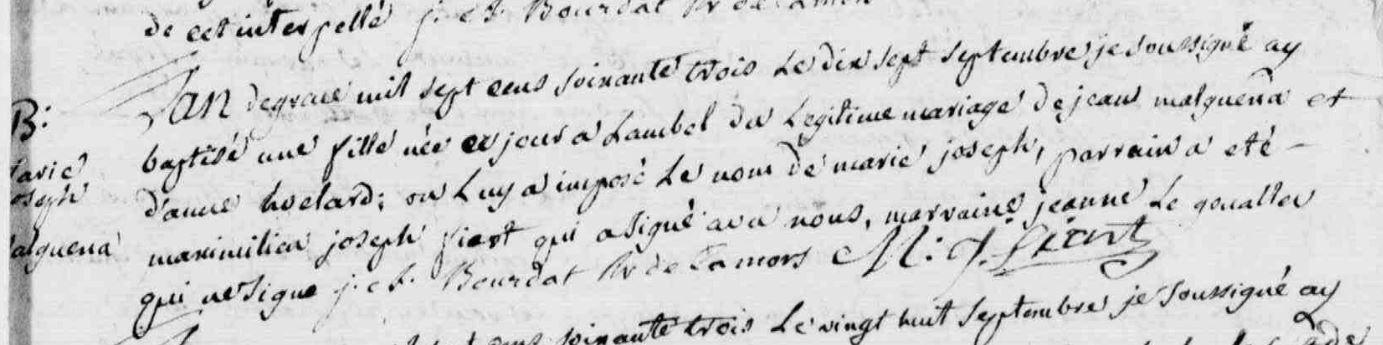 de cet interpellé j: ch: Bourdat Pr de Camors
Lan de grace mil sept cens soixante trois Le dix sept septembre je soussigné ay
B:
baptisé une fille née ce jour a Lambel du Legitime mariage de jean malguena et
marie
d'anne hoelard; on Luy a imposé Le nom de marie joseph, parrain a eté
joseph
maximilien joseph fiart qui a signé avec nous, marraine jeanne Le goualler
malguena
qui ne signe j: ch: Bourdat Pr de Camors M: J: fiart
sept cens soixante trois Le vingt huit septembre je soussigné ay